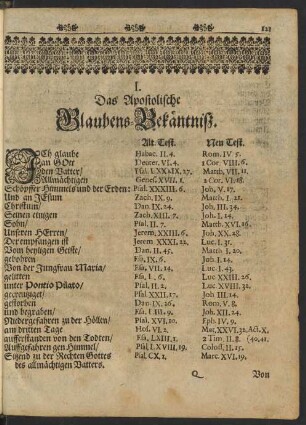 121
I.
Das Apostolische
Glaubens-Bekäntniß.
Alt. Test. Neu Test.
Ich glaube Habac. II. 4. Rom. IV 5.
an GOtt Deuter. VI. 4. 1 Cor VIII. 6.
den Vatter/ Psal. LXXXIX, 27. Matth, VII, 11.
Allmächtigen Genes. XVII. 1. 2 Cor. VI. 18.
Schöpffer Himmels und der Erden: Psal. XXXIII, 6. Joh, V. 17.
Und an JEsum Zach, IX. 9. Matth. I. 21.
Christum/ Dan. IX. 24. Joh, I. 41.
Seinen einigen Zach, XIII, 7. Joh, I. 14.
Sohn/ Psal, II, 7. Matth. XVI, 16.
Unseren HErren/ Jerem, XXIII, 6. Joh, XX. 28.
Der empfangen ist Jerem, XXXI, 22. Luc, I. 31.
Vom heyligen Geiste/ Dan, II. 45. Matth. I. 20.
gebohren Es, IX, 6. Joh. I. 14.
Von der Jungfrau Maria/ Es, VII. 14. Luc. I. 43.
gelitten Es, I 3. 7. Luc XXIII. 26.
unter Pontio Pilato/ Psal, II, 2. Luc. XXIII. 32.
gecreutziget/ Psal XXII, 17. Joh III, 14.
gestorben Dan, IX. 26. Rom, V. 8.
und begraben/ Joh, I. 24.
Niedergefahren zu der Höllen/ Psal, XVI. 10. Eph. IV, 9.
am dritten Tage Hos, VI. 2.
aufferstanden von den Todten/ 2 Tim, II. 8. (40, 41,
Auffgefahren gen Himmel/ Psal, LXVIII, 19. Coloss, II. 15.
Sitzend zu der Rechten Gottes Psal, CX, 1. Marc. XVI, 19.
des allmächtigen Vatters.
Q Von